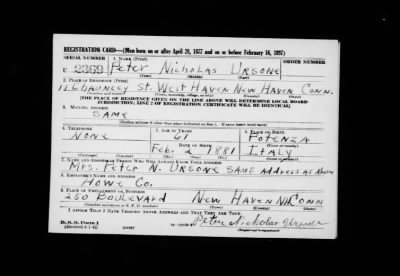 REGISTRATION CARD—(Men born on or after April 28, 1877 and on or before February 16, 1897)
SERIAL NUMBER 1. NAME (Print) ORDER NUMBER
U 2369 Peter Nicholas Ursone
(First) (Middle) (Last)
2. PLACE OF RESIDENCE (Print)
Chauncey St. West Haven New Haven Conn.
[THE PLACE OF RESIDENCE GIVEN ON THE LINE ABOVE WILL DETERMINE LOCAL BOARD
JURISDICTION; LINE 2 OF REGISTRATION CERTIFICATE WILL BE IDENTICAL]
3. MAILING ADDRESS
SAME
4. TELEPHONE 5. AGE IN YEARS 6. PLACE OF BIRTH
None 61 Potenza
DATE OF BIRTH
Feb. 2 1881 Italy
7. NAME AND ADDRESS OF PERSON WHO WILL ALWAYS KNOW YOUR ADDRESS
Mrs. Peter N. Ursone Same Address as Above
8. EMPLOYER'S NAME AND ADDRESS
Howe Co.
9. PLACE OF EMPLOYMENT OR BUSINESS
250 Boulevard New Haven NH Conn
I AFFIRM THAT I HAVE VERIFIED ABOVE ANSWERS AND THAT THEY ARE TRUE.
D. S. S. Form 1
(Revised 4-1-42)
Peter Nicholas Ursone